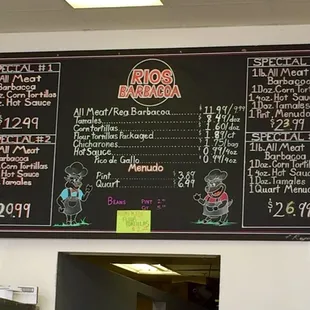 RIOS
BARBACOA
SPECIAL #1
All Meat
Barbacoa
Corn Tortillas
Hot Sauce
$12.99
SPECIAL #2
All Meat
Barbacoa
Corn Tortillas
Hot Sauce
Tamales
20.99
RIOS
BARBACOA
All Meat/Reg. Barbacoa
Tamales
Corn tortillas
Flour Tortillas Packaged
Chicharones
Hot Sauce
Pico de Gallo
$11.99/9.99
8.49/doz
1.60/doz
1.89/ct
1.75/bag
0.99/4oz
0.99/4oz
Menudo
Pint 3.89
Quart 6.49
BEANS PINT
SPECIAL
1lb. All Meat
Barbacoa
1 Doz. Corn Tortillas
4oz. Hot Sauce
1 Doz. Tamales
1 Pint. Menudo
$23.99
SPECIAL
1lb. All Meat
Barbacoa
1 Doz. Corn Tortillas
4oz. Hot Sauce
1 Doz. Tamales
1 Quart Menudo
$26.99